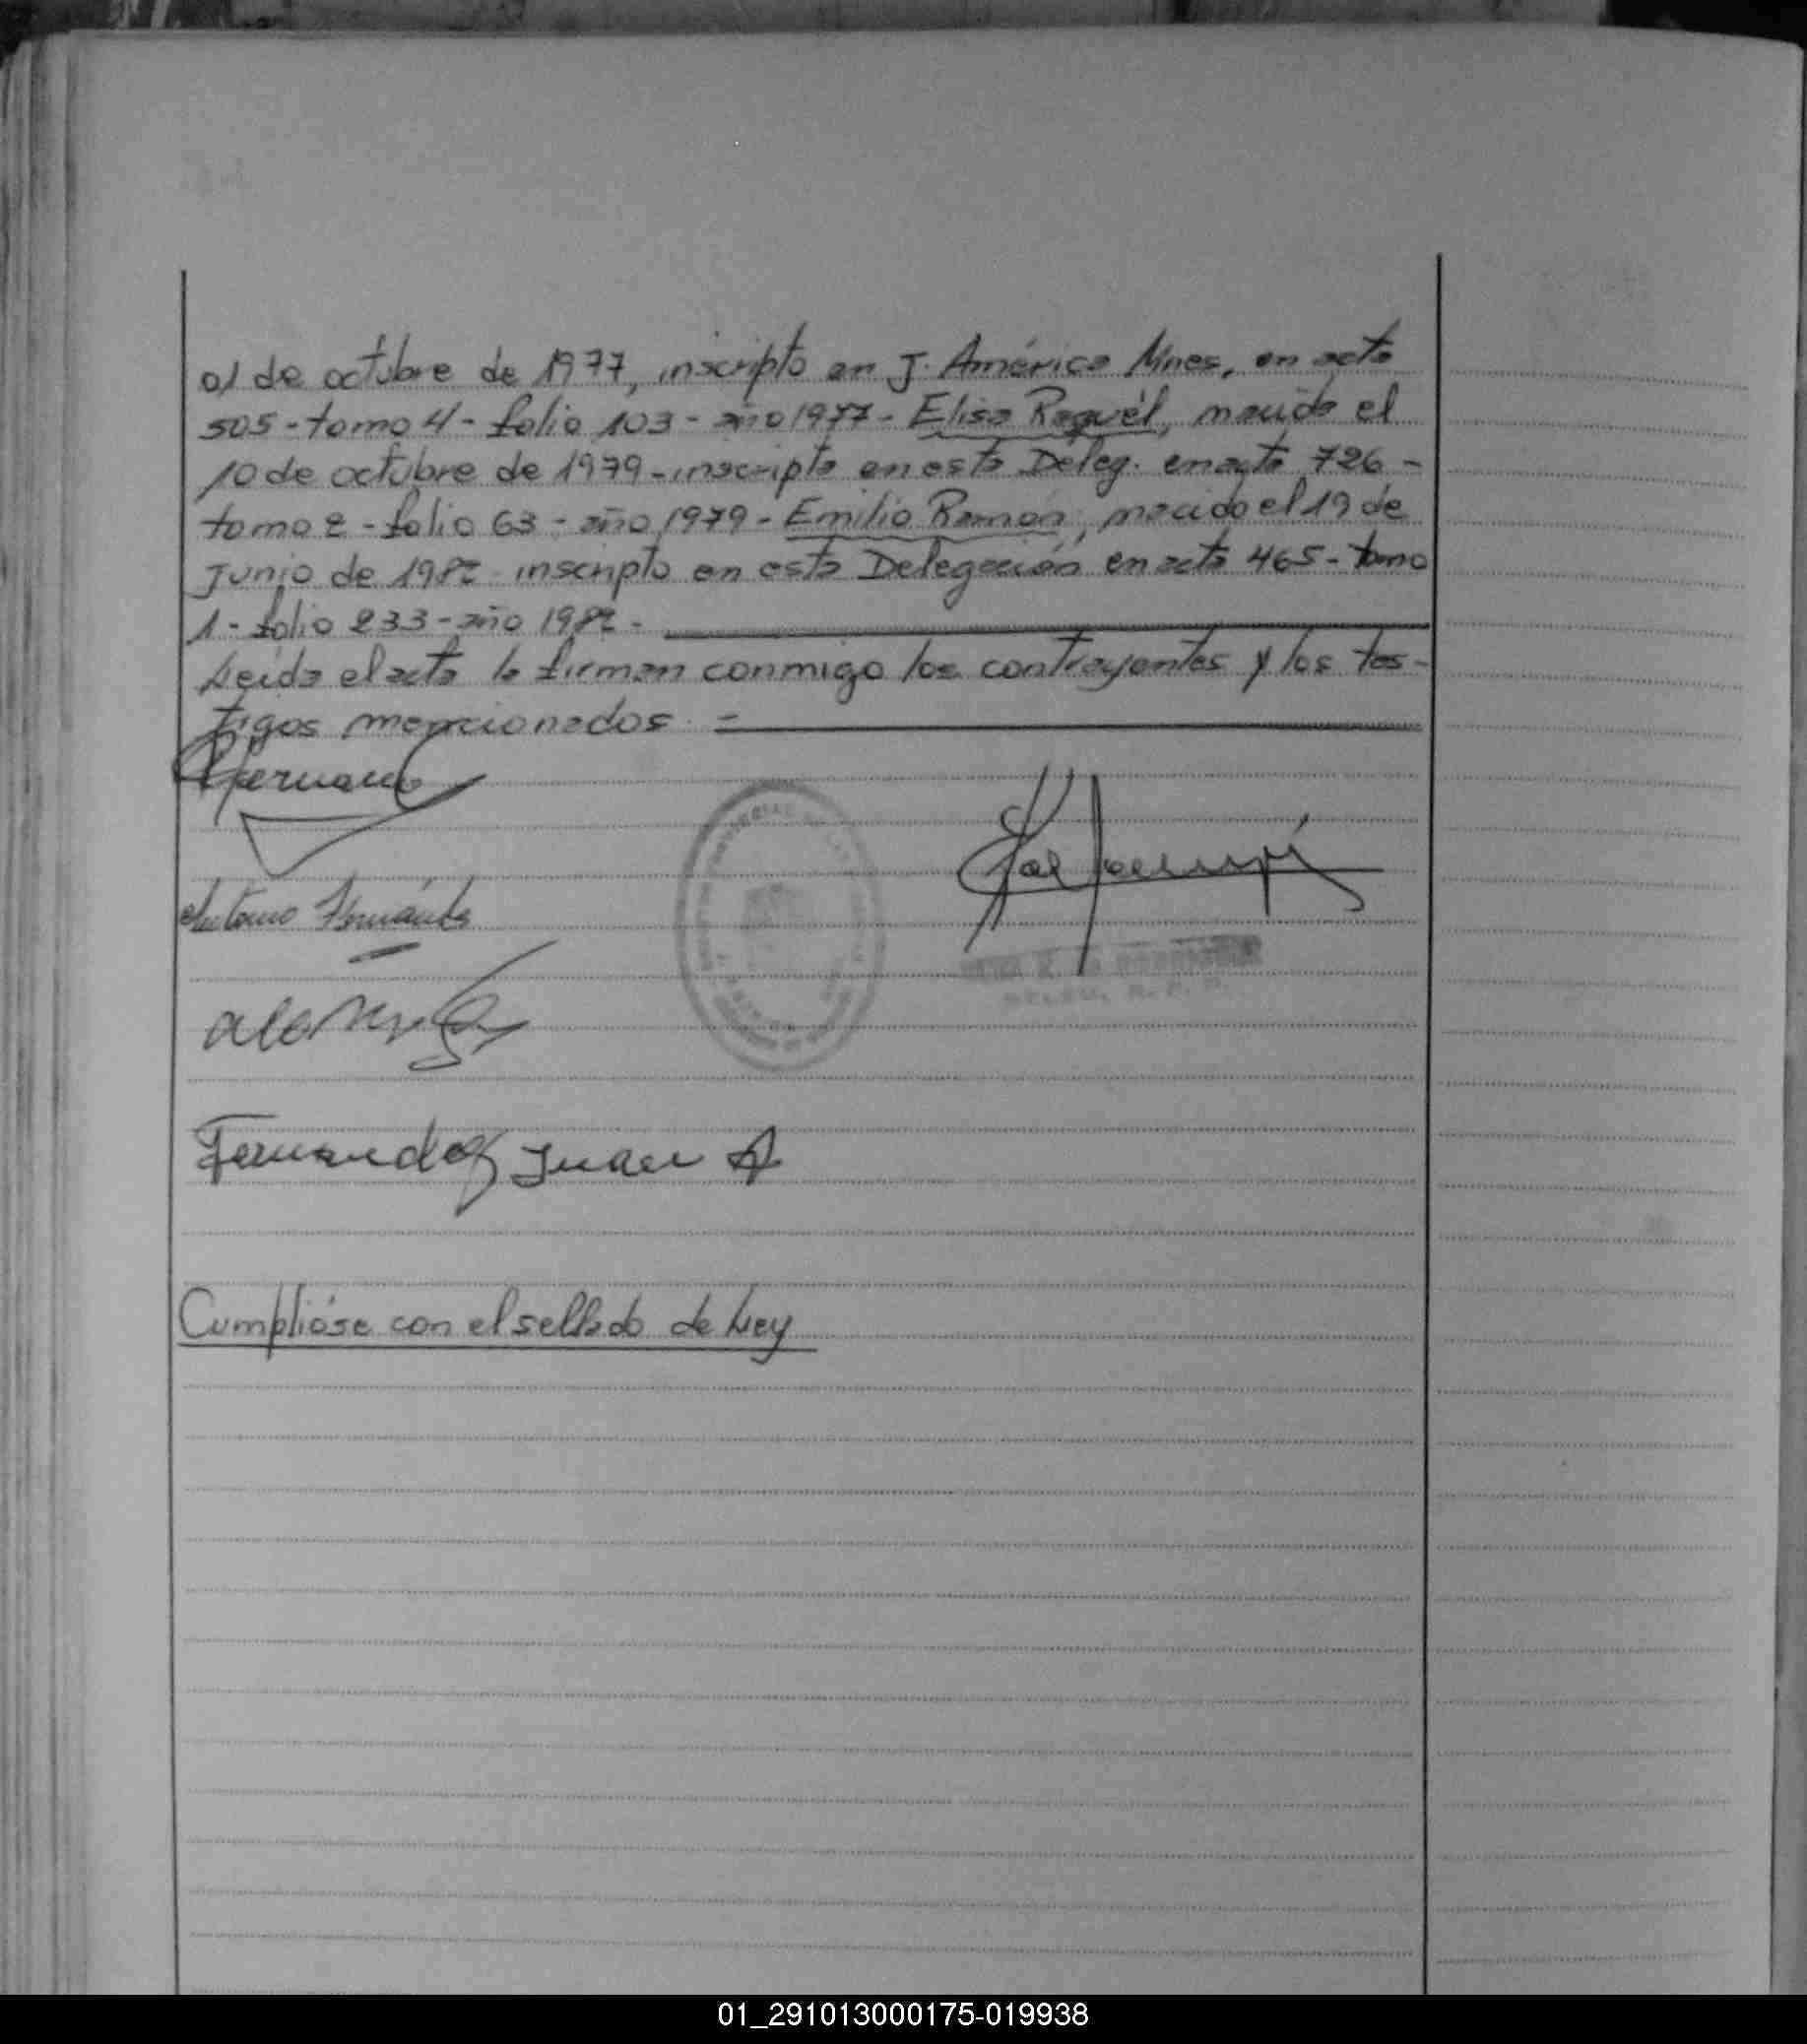 01 de octubre de 1977, inscripto en J. América Unes, en acta
505 - tomo 4 - folio 103 - año 1977 - Elisa Raquél, nacida el
10 de octubre de 1979 - inscripta en esta Deleg. en acta 726 -
tomo 2 - folio 63 - año 1979 - Emilio Ramón, nacido el 19 de
Junio de 1982 - inscripto en esta Delegación en acta 465 - tomo
1 - folio 233 - año 1982 -
Leída el acta la firman conmigo los contrayentes y los tes-
tigos mencionados. -
Antonio Fernández
Fernandez Juan A
Cumplióse con el sellado de Ley
01_291013000175-019938